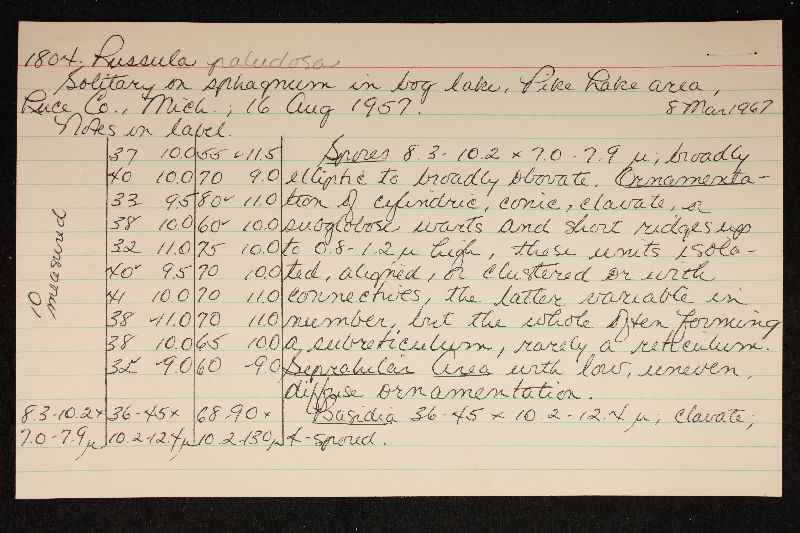 1804. Russula paludosa
Solitary on sphagnum in bog lake, Pike Lake area,
Luce Co., Mich.; 16 Aug 1957. 8 Mar 1967
Notes on label.
10 measured
37 10.0 55 -11.5 Spores 8.3-10.2 x 7.0-7.9 µ; broadly
40 10.0 70 9.0 elliptic to broadly obovate. Ornamenta-
33 9.5 80 11.0 tion of cylindric, conic, clavate, or
38 10.0 60 10.0 subglobose warts and short ridges up
32 11.0 75 10.0 to 0.8-1.2 µ high, these units isola-
40 9.5 70 10.0 ted, aligned, or clustered or with
41 10.0 70 11.0 connectives, the latter variable in
38 -11.0 70 11.0 number, but the whole often forming
38 10.0 65 10.0 a subreticulum, rarely a reticulum.
32 -9.0 60 -9.0 Suprahilar area with low, uneven,
diffuse ornamentation.
8.3-10.2 x 36-45 x 68-90 x Basidia 36-45 x 10.2-12.4 µ; clavate;
7.0-7.9 µ 10.2-12.4 µ 10.2-13.0 µ 4-spored.